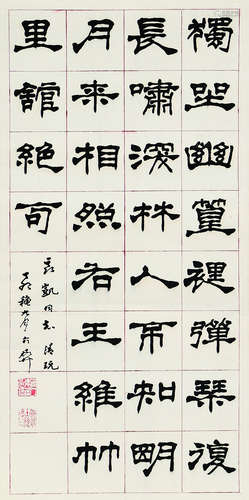 獨坐幽篁裡彈琴復
長嘯深林人不知明
月來相照右王維竹
里館絕句
凱同志清玩